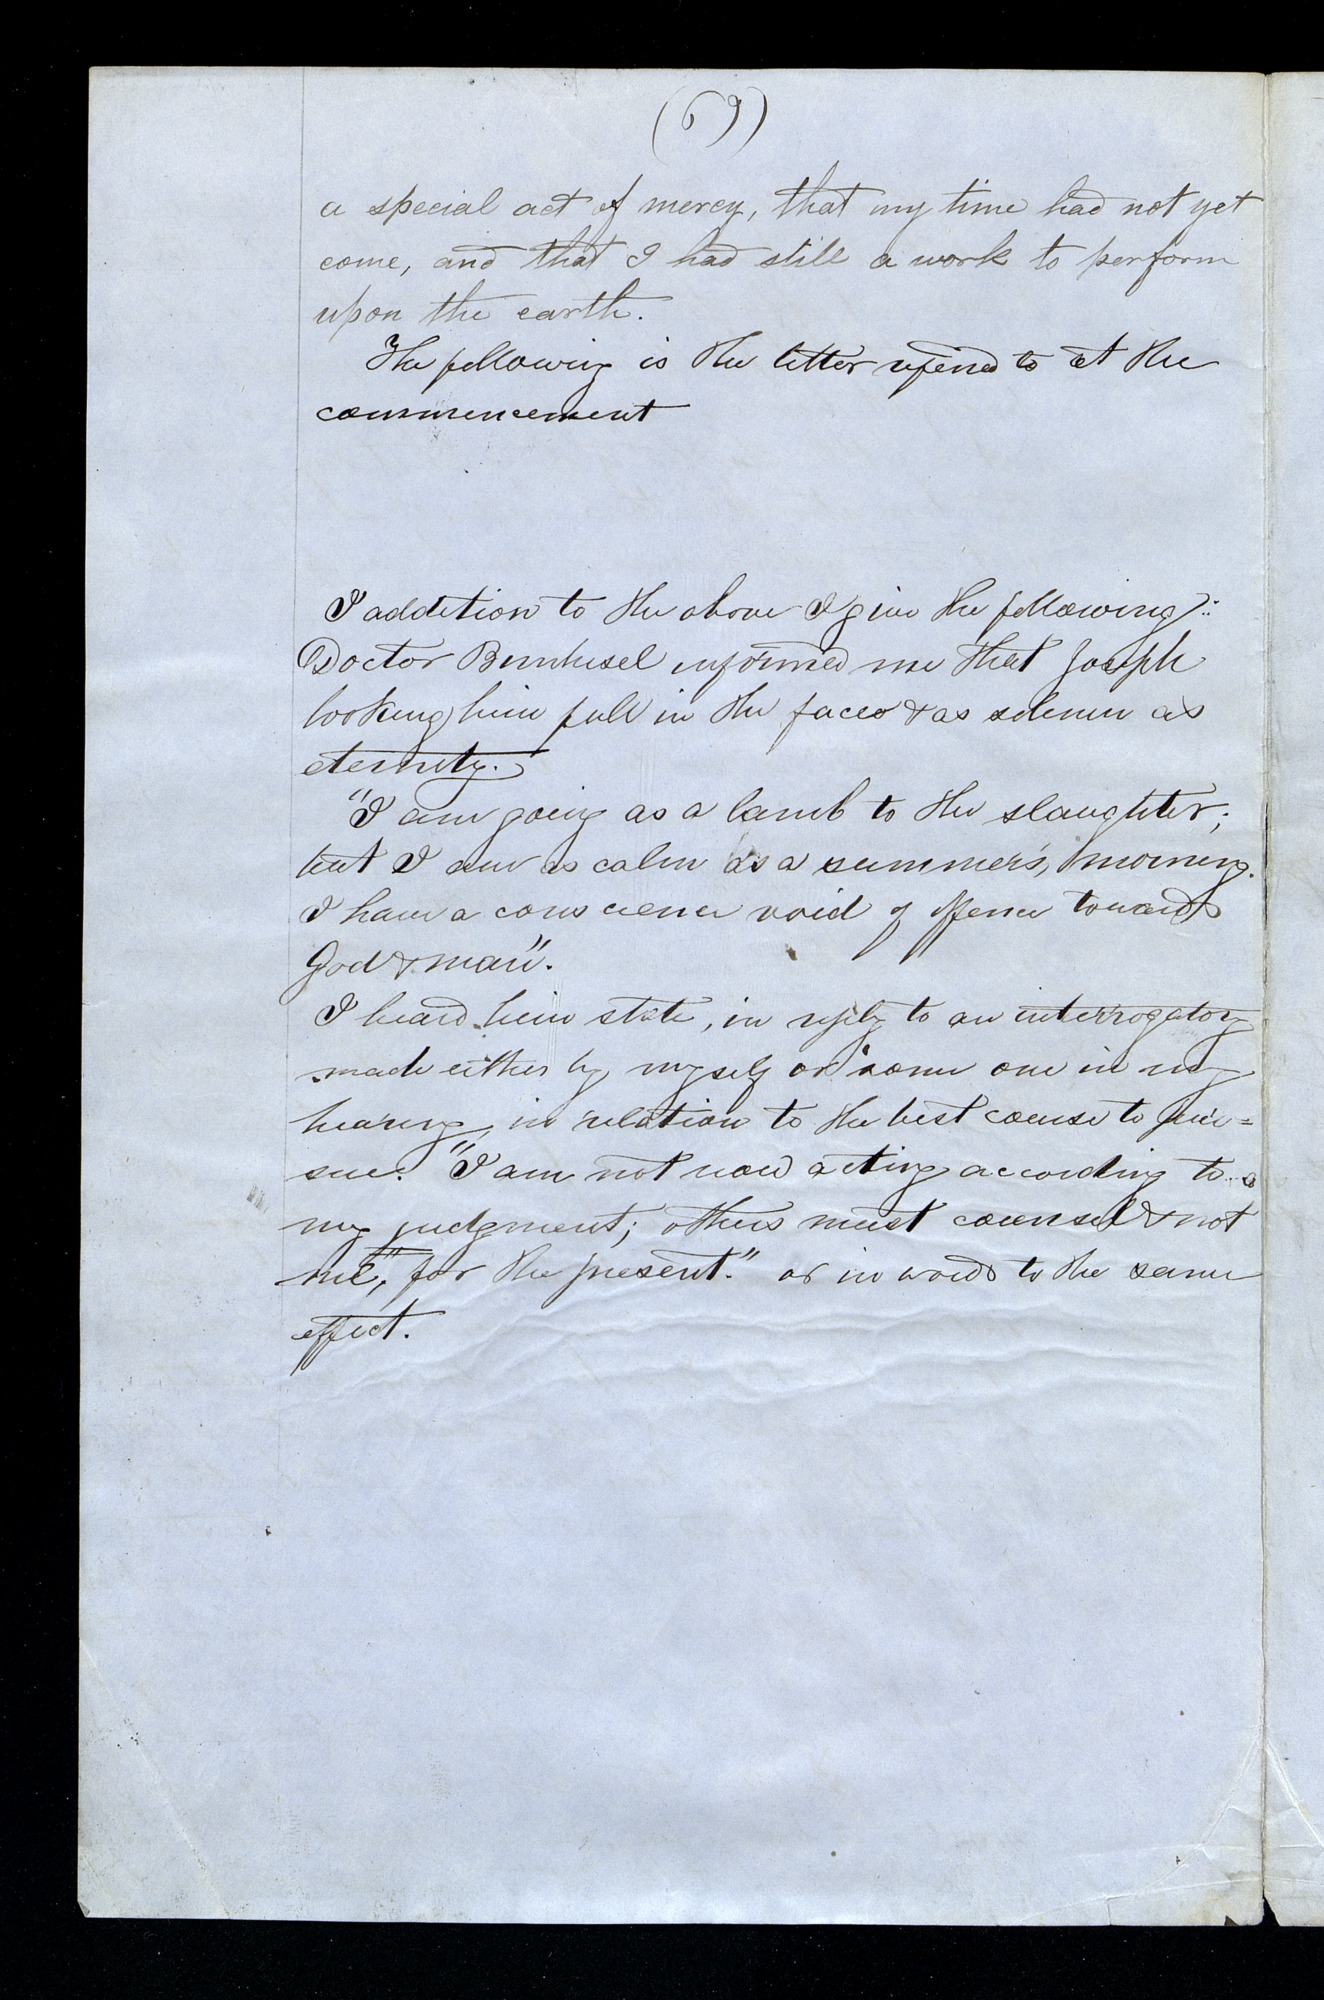 (69)
a special act of mercy, that my time had not yet
come, and that I had still a work to perform
upon the earth.
The following is the letter refered to at the
commencement
I addition to the above I give the following:
Doctor Bernhisel informed me that Joseph
looking him full in the face & as solemn as
eternity.
"I am going as a lamb to the slaughter;
but I am as calm as a summer's, morning.
I have a conscience void of offence towards
God & man".
I heard him state, in reply to an interrogatory
made either by myself or some one in my
hearing, in relation to the best course to pur=
sue. "I am not now acting according to
my judgment; others must counsel & not
me", for the present." or in words to the same
effect.